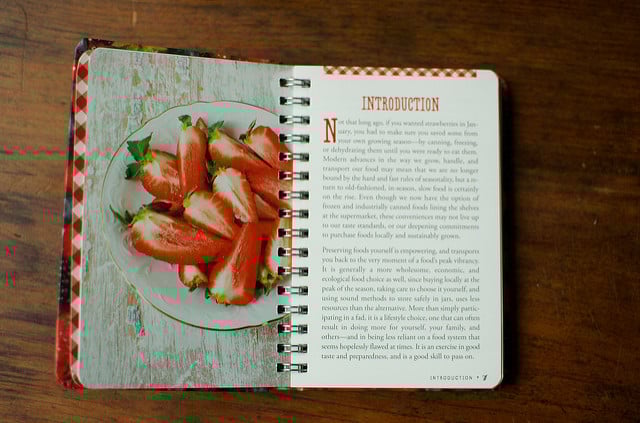 INTRODUCTION
Not that long ago, if you wanted strawberries in Jan-
uary, you had to make sure you saved some from
your own growing season—by canning, freezing,
or dehydrating them until you were ready to eat them.
Modern advances in the way we grow, handle, and
transport our food may mean that we are no longer
bound by the hard and fast rules of seasonality, but a re-
turn to old-fashioned, in season, slow food is certainly
on the rise. Even though we now have the option of
frozen and industrially canned foods lining the shelves
at the supermarket, these conveniences may not live up
to our taste standards, or our deepening commitments
to purchase foods locally and sustainably grown.
Preserving foods yourself is empowering, and transports
you back to the very moment of a food's peak vibrancy.
It is generally a more wholesome, economic, and
ecological food choice as well, since buying locally at the
peak of the season, taking care to choose it yourself, and
using sound methods to store safely in jars, uses less
resources than the alternative. More than simply partic-
ipating in a fad, it is a lifestyle choice, one that can often
result in doing more for yourself, your family, and
others—and in being less reliant on a food system that
seems hopelessly flawed at times. It is an exercise in good
taste and preparedness, and is a good skill to pass on.
INTRODUCTION • 7